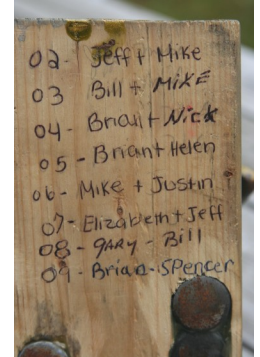 02- Jeff + Mike
03 Bill + MiKE
04- Brian + Nick
05 - Brian + Helen
06- Mike + Justin
07- Elizabeth + Jeff
08- gARy - Bill
09- Brian - SPencer